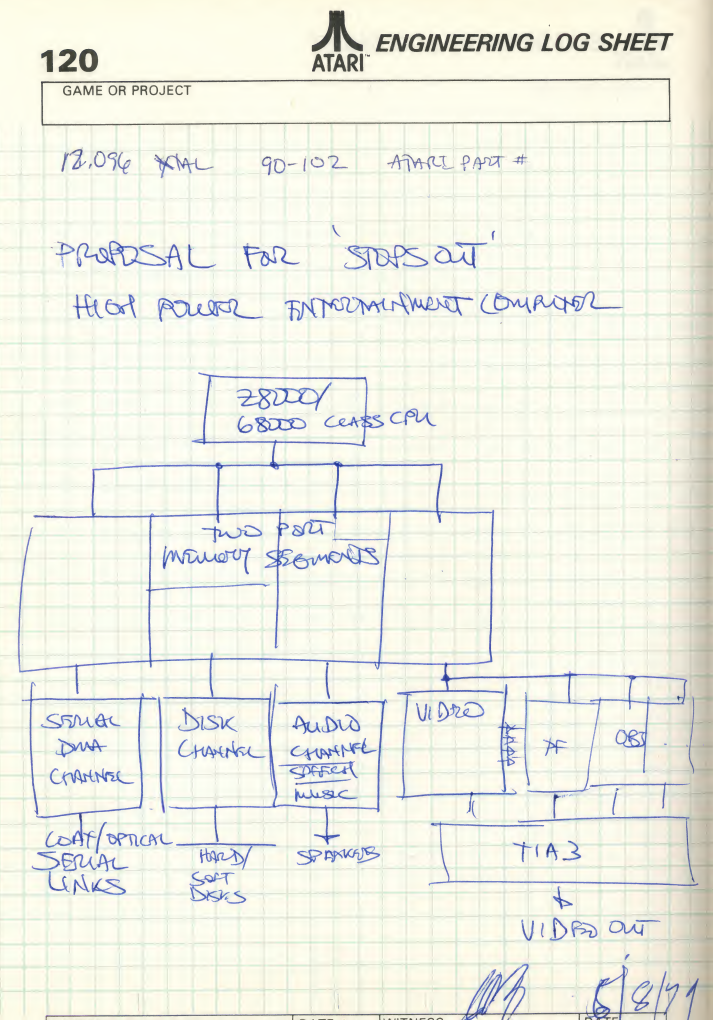 120
ATARI™ ENGINEERING LOG SHEET
GAME OR PROJECT
12.096 XTAL 90-102 ATARI PART #
PROPOSAL FOR 'STOPS OUT'
HIGH POWER ENTERTAINMENT COMPUTER
Z8000/
68000 CLASS CPU
TWO PORT
MEMORY SEGMENTS
SERIAL
DMA
CHANNEL
DISK
CHANNEL
AUDIO
CHANNEL
SPEECH
MUSIC
VIDEO
PF
OBJ
COAX/OPTICAL
SERIAL
LINKS
HARD/
SOFT
DISKS
SPEAKERS
TIA3
VIDEO OUT
DATE WITNESS DATE